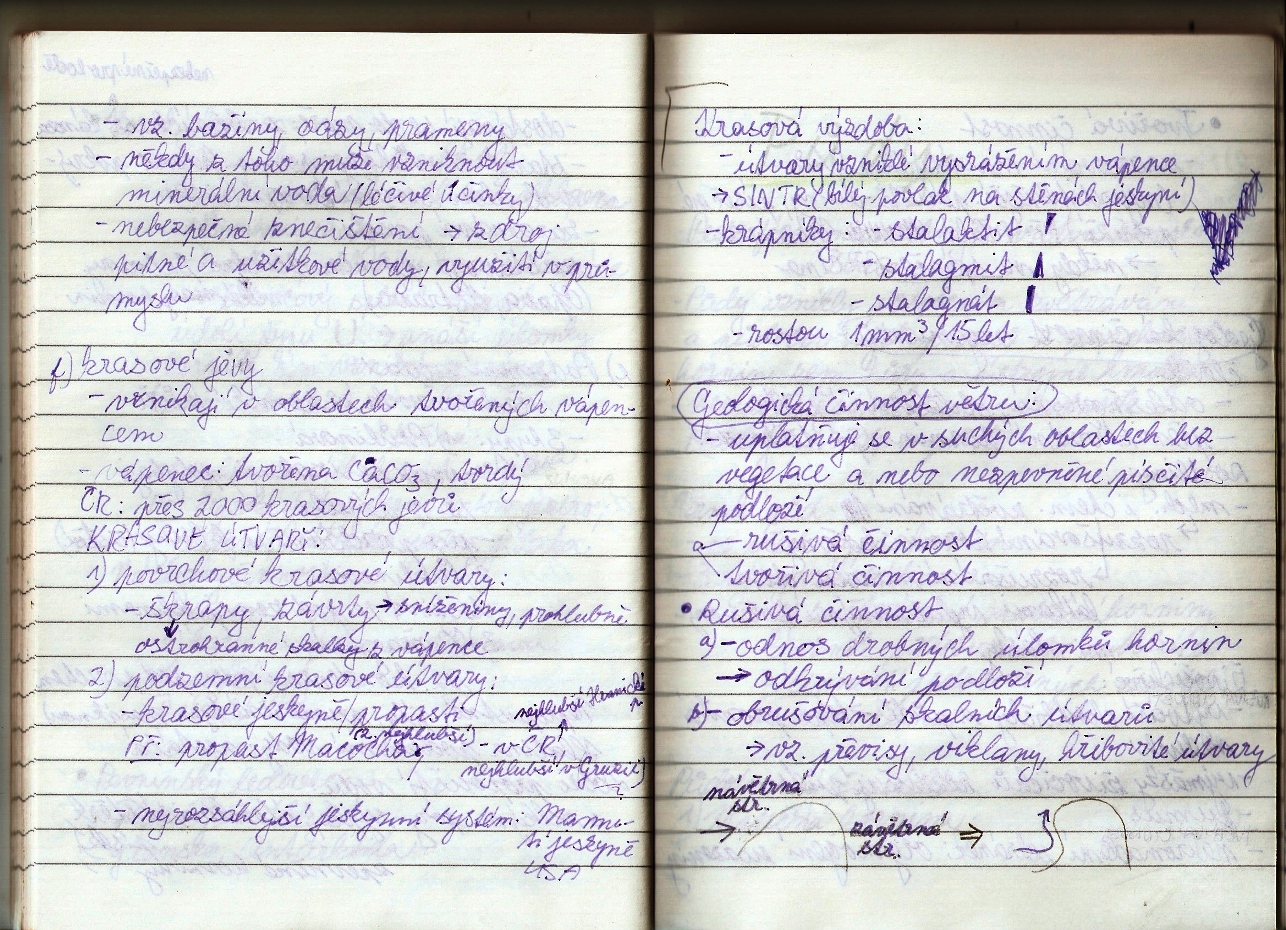 - vz. bažiny, oázy, prameny
- někdy z toho může vzniknout
minerální voda (léčivé účinky)
- nebezpečné znečištění → zdroj
pitné a užitkové vody, využití v prů-
myslu
f.) krasové jevy
- vznikají v oblastech tvořených vápen-
cem
- vápenec: tvořena CaCO₃, tvrdý
ČR: přes 2000 krasových jevů
KRASAVE ÚTVAŘÍ:
1) povrchové krasové útvary:
- škrapy, závrty → sníženiny, prohlubně
ostrohranné skalky z vápence
2) podzemní krasové útvary:
- krasové jeskyně/propasti
nejhlubší Hranická
p.
(2. nejhlubší)
PŘ: propast Macocha - v ČR,
nejhlubší v Gruzii)
?
- nejrozsáhlejší jeskynní systém: Mamu-
tí jeskyně
USA
Krasová výzdoba:
- útvary vzniklé vysrážením vápence
→ SINTR (bílý povlak na stěnách jeskyní)
- krápníky: - stalaktit
- stalagmit
- stalagnát
- rostou 1mm³/15let
Geologická činnost větru:
- uplatňuje se v suchých oblastech bez
vegetace a nebo nezpevněné písčité
podloží
rušivá činnost
tvořivá činnost
• Rušivá činnost
a) - odnos drobných úlomků hornin
→ odkrývání podloží
b) - obrušování skalních útvarů
→ vz. převisy, viklany, hřibovité útvary
návětrná
str.
→
závětrná
str.
⇒